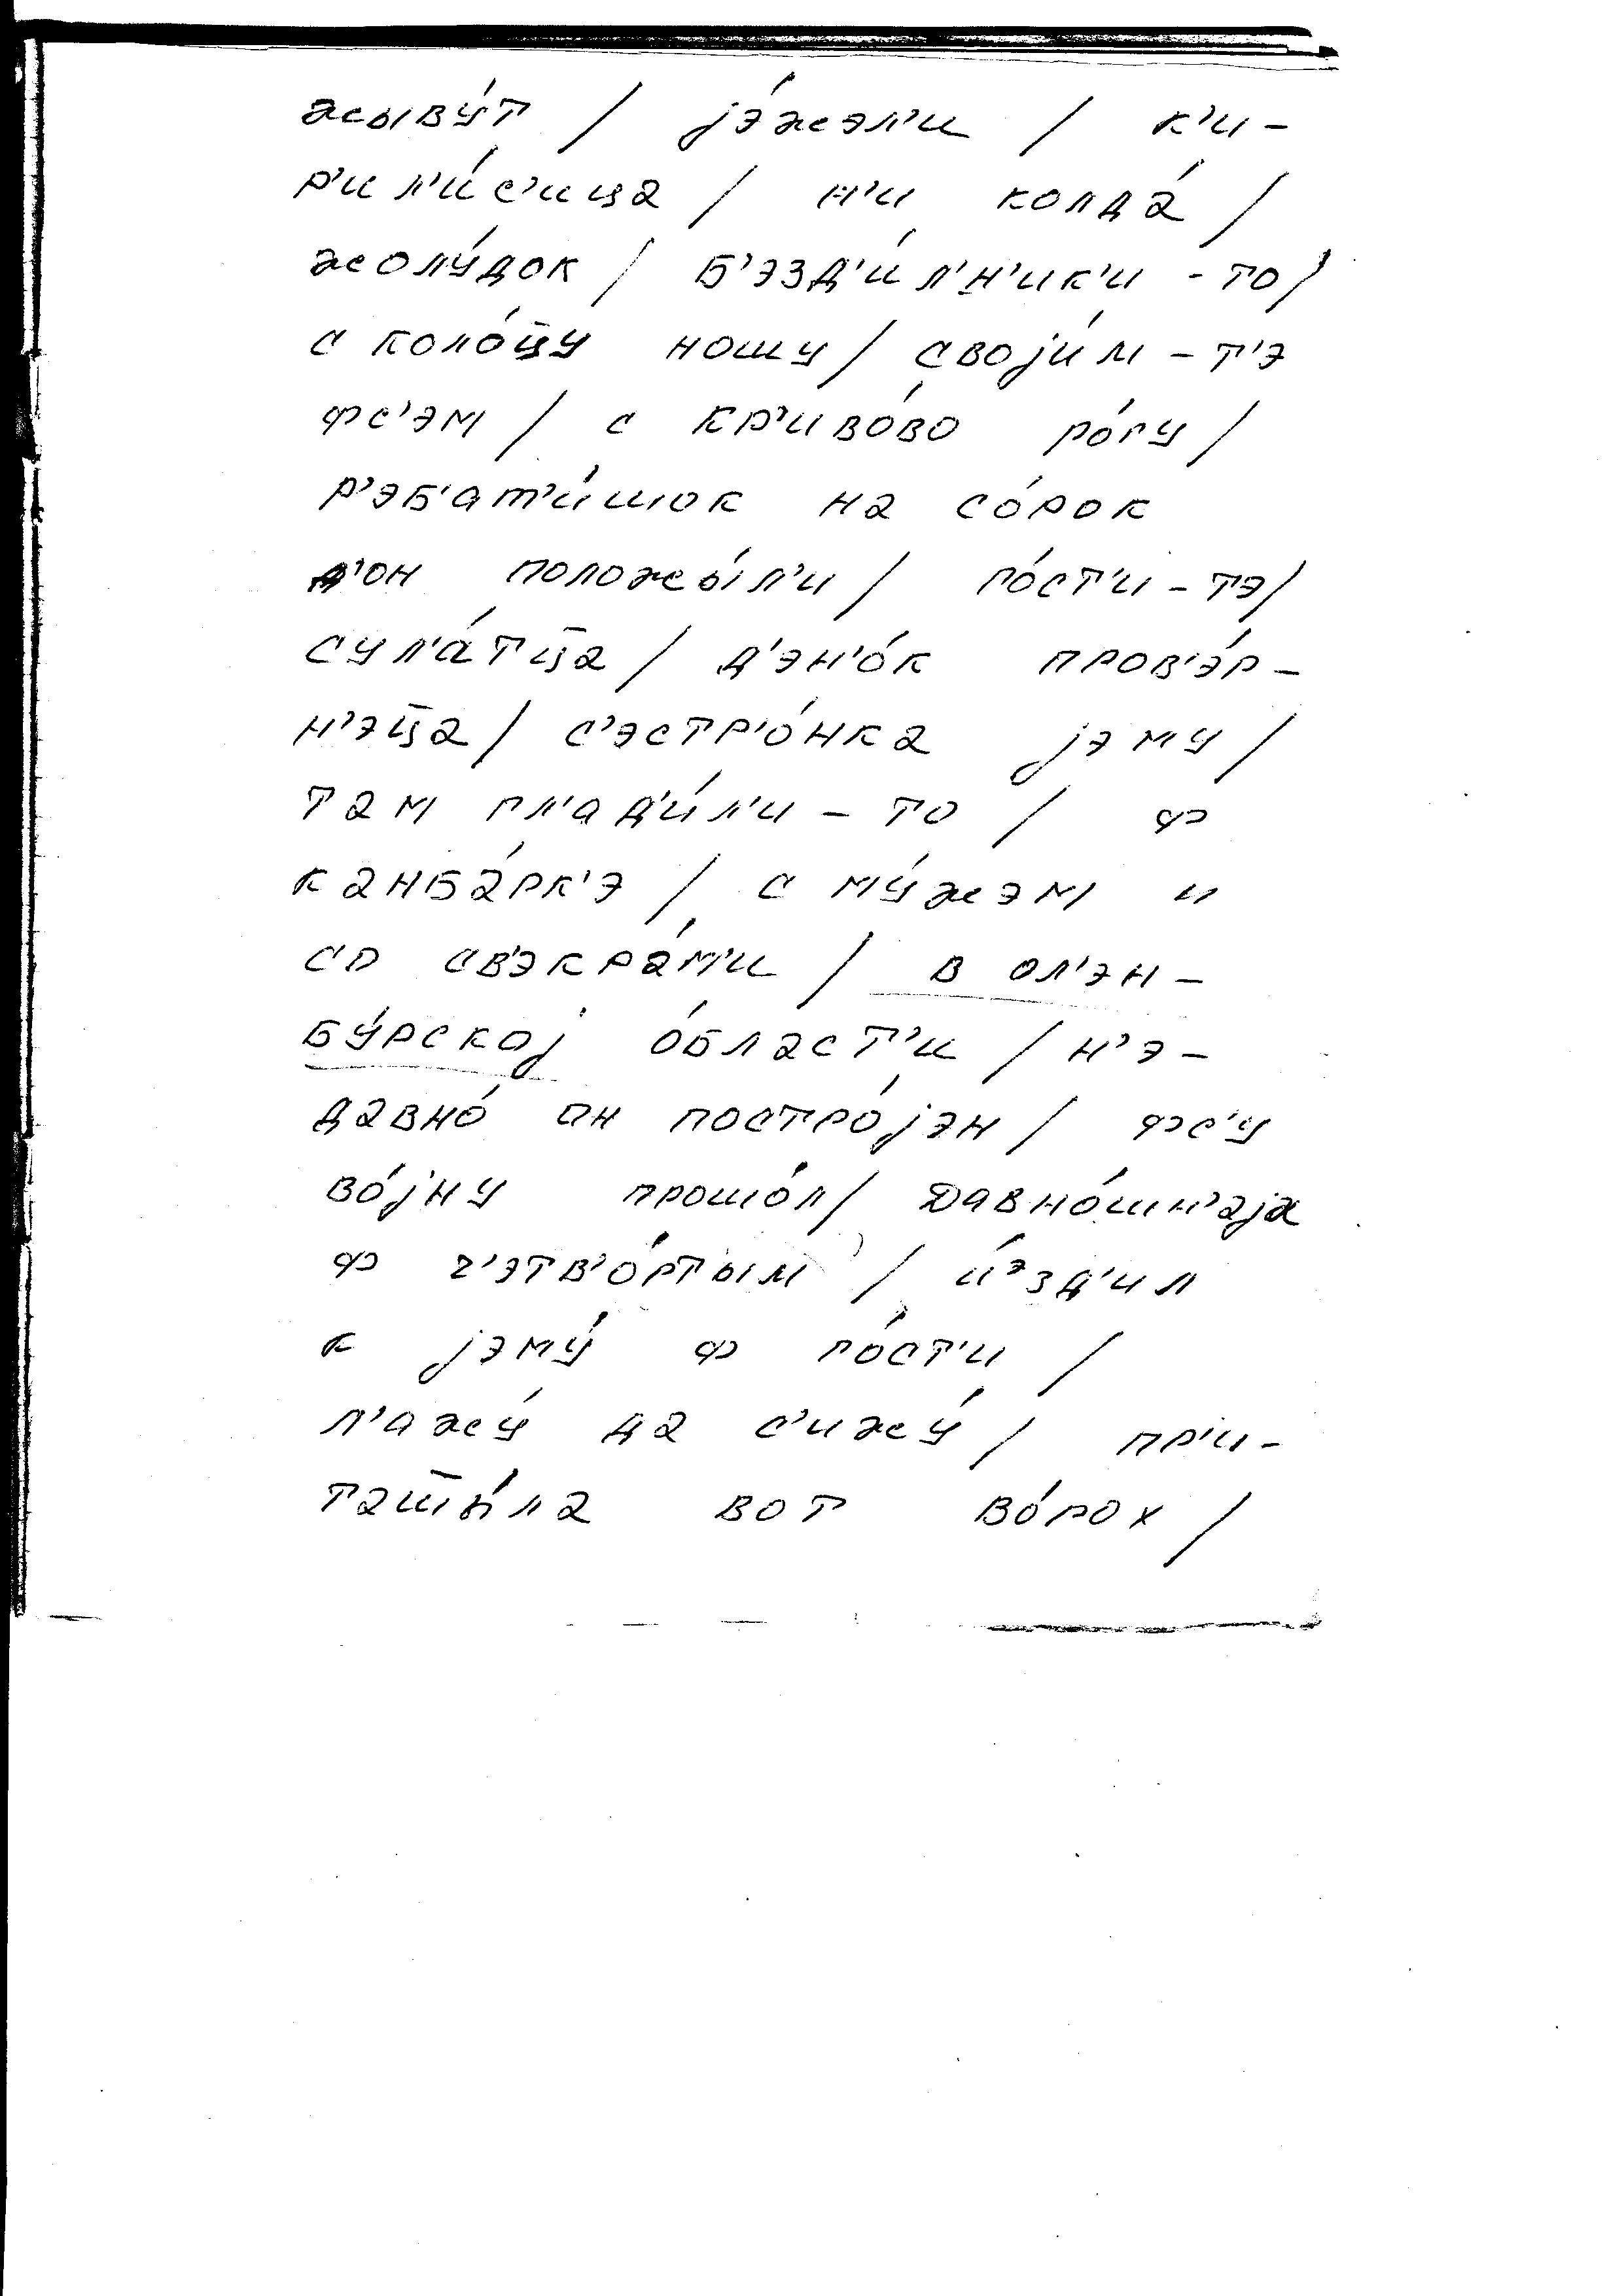 жывýт / jэ́жэл'и / к'и-
р'ил'и́с'ица / н'и колдá /
жолýдок / б'эзд'и́л'н'ик'и - то /
с колóц̄у ношу / своји́м - т'э
фс'эм / с кр'ивóво рóгу /
р'эб'ат'и́шок на сóрок
д'он положы́л'и / гóст'и - тэ /
сул'áтц̄а / д'эн'óк пров'э́р-
н'эц̄а / с'эстр'óнка jэму /
там гл'ад'и́л'и - то / ф
канбáрк'э / с мýжэм и
со св'экрáм'и / в ол'эн-
бýрскоj óбласт'и / н'э-
давнó он пострójэн / фс'у
вójну прошóл / давнóшн'аjа
ф ч'этв'óртым / и́ᵊзд'ил
к jэмý ф гóст'и /
л'ажý да с'ижý / пр'и-
таш̄ы́ла вот вóрох /